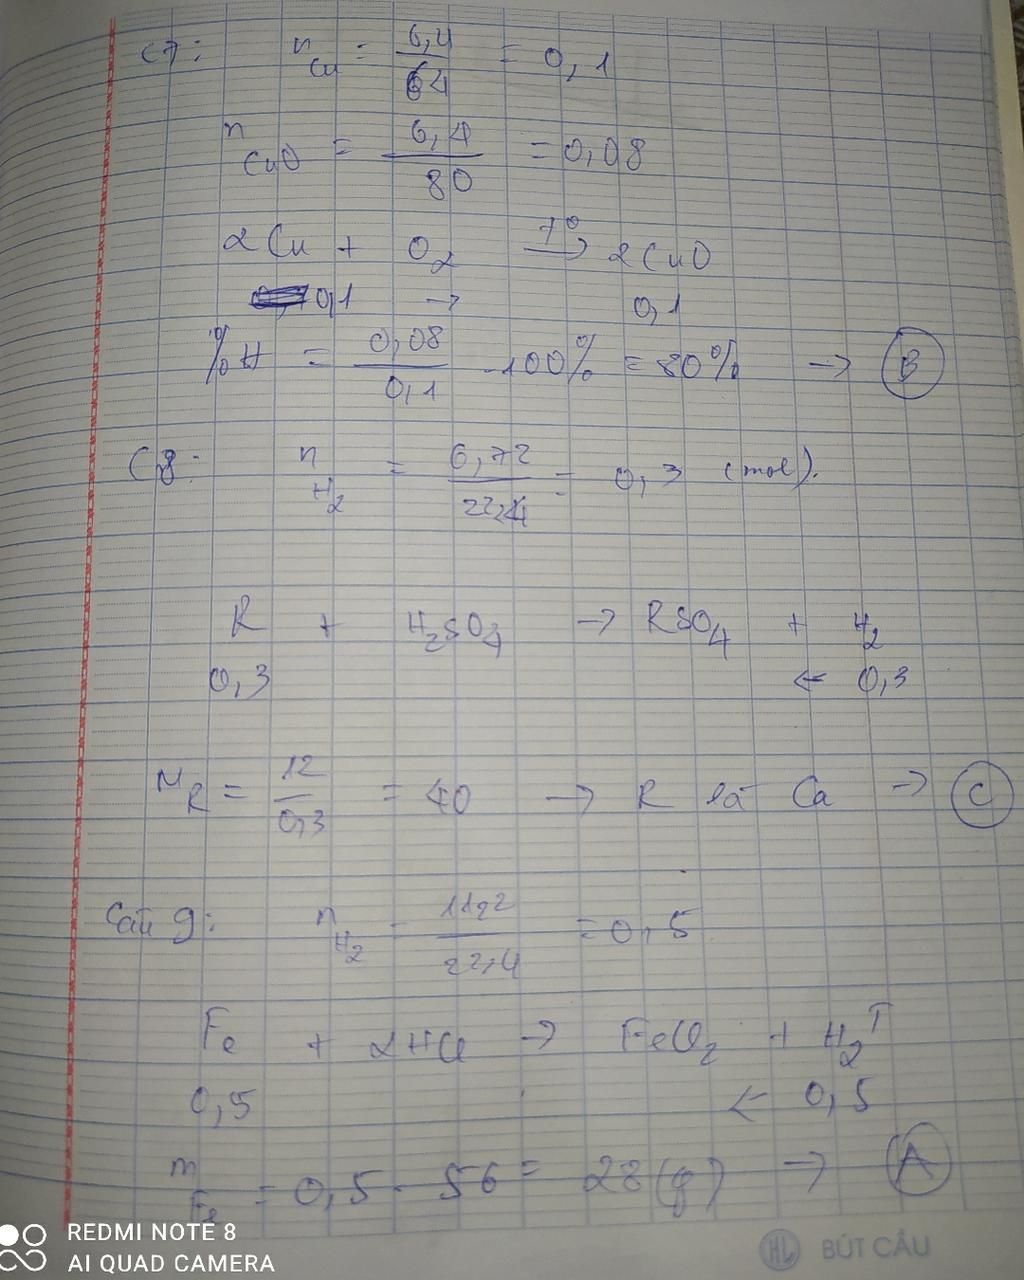 C7: n Cu = 6,4 / 64 = 0,1
n CuO = 6,4 / 80 = 0,08
2Cu + O2 →(t°) 2CuO
0,1 → 0,1
%H = 0,08 / 0,1 . 100% = 80% → B
C8: n H2 = 6,72 / 22,4 = 0,3 (mol).
R + H2SO4 → RSO4 + H2
0,3 ← 0,3
MR = 12 / 0,3 = 40 → R là Ca → C
Câu 9: n H2 = 11,2 / 22,4 = 0,5
Fe + 2HCl → FeCl2 + H2↑
0,5 ← 0,5
m Fe = 0,5 . 56 = 28 (g) → A
REDMI NOTE 8
AI QUAD CAMERA
HL BÚT CÂU